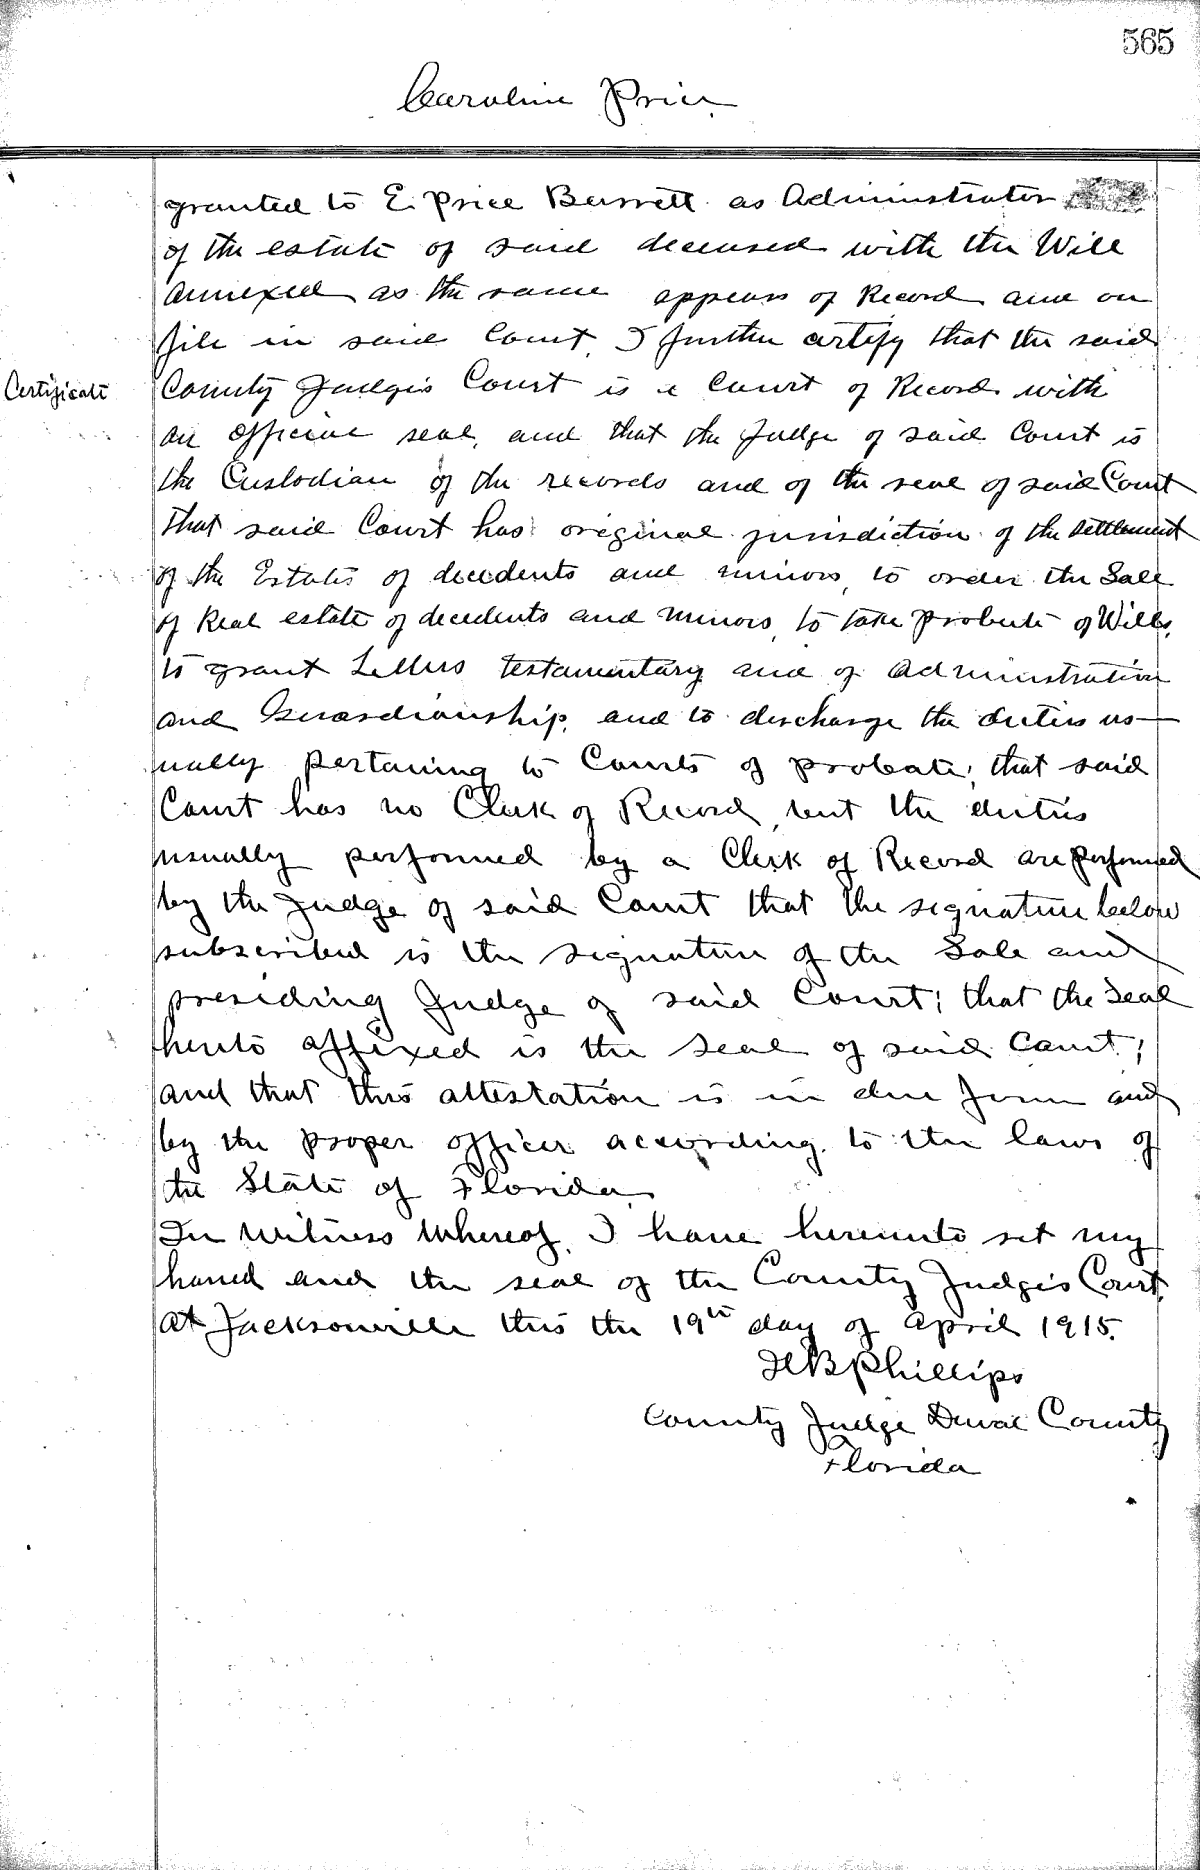 565
Caroline Price
granted to E. Price Barrett as Administrator
of the estate of said deceased with the Will
annexed as the same appears of Record and on
file in said Court, I further certify that the said
Certificate
County Judge's Court is a Court of Record with
an official seal, and that the Judge of said Court is
the Custodian of the records and of the seal of said Court
that said Court has original jurisdiction of the settlement
of the Estates of decedents and minors, to order the Sale
of Real estate of decedents and minors, to take probate of Wills,
to grant Letters testamentary and of Administration
and Guardianship, and to discharge the duties us-
ually pertaining to Courts of probate; that said
Court has no Clerk of Record, but the duties
usually performed by a Clerk of Record are performed
by the Judge of said Court that the signature below
subscribed is the signature of the Sole and
presiding Judge of said Court; that the Seal
hereto affixed is the seal of said Court;
and that this attestation is in due form and
by the proper officer according to the laws of
the State of Florida.
In Witness Whereof, I have hereunto set my
hand and the seal of the County Judge's Court,
at Jacksonville this the 19th day of April 1915.
H B Phillips
County Judge Duval County
Florida